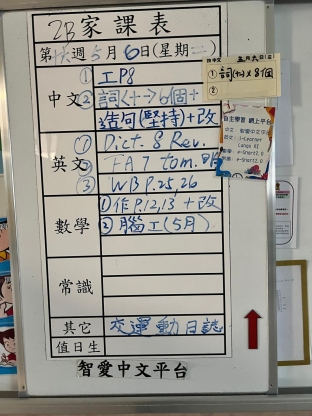 2B 家課表
第十六週5月6日(星期二)
中文
① 工P8
② 詞(十一)→6個+
造句(堅持)+改
英文
① Dict. 8 Rev.
② FA7 tom.
③ WB P.25,26
數學
① 作P.12,13 + 改
② 腦工(5月)
常識
其它
交運動日誌
值日生
智愛中文平台
五月六日
① 詞(十一)x8個
②
自主學習 網上平台